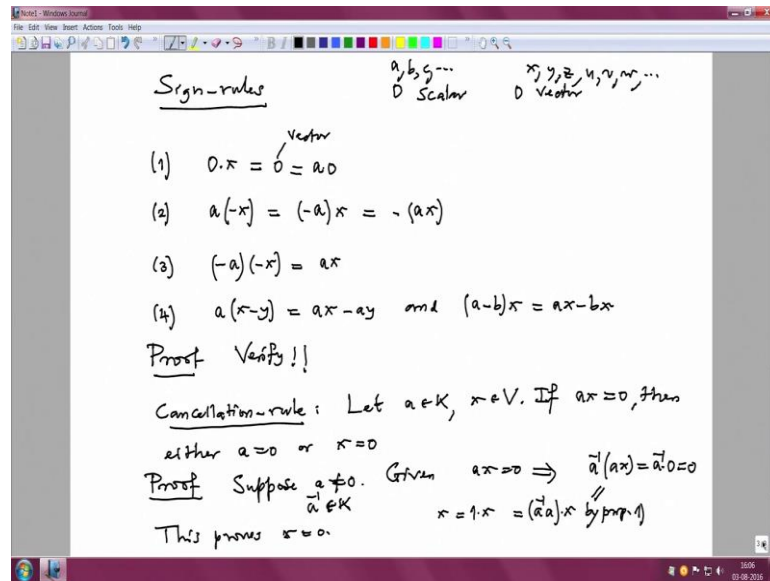 Note1 - Windows Journal
File Edit View Insert Actions Tools Help
Sign-rules
a, b, c, ... x, y, z, u, v, w, ...
0 scalar 0 vector
vector
(1) 0·x = 0 = a0
(2) a(-x) = (-a)x = -(ax)
(3) (-a)(-x) = ax
(4) a(x-y) = ax-ay and (a-b)x = ax-bx
Proof Verify!!
Cancellation-rule: Let a∈K, x∈V. If ax=0, then
either a=0 or x=0
Proof Suppose a≠0. Given ax=0 ⟹ a⁻¹(ax)=a⁻¹·0=0
a⁻¹∈K x = 1·x = (a⁻¹a)·x by prop. 1)
This proves x=0.
16:06
03-08-2016